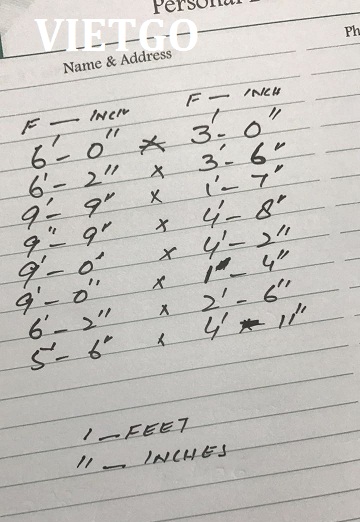 Personal
VIETGO
Name & Address
Ph
F — INCH F — INCH
6'- 0" x 3'- 0"
6'- 2" x 3'- 6"
9'- 9" x 1'- 7"
9"- 9" x 4'- 8"
9'- 0" x 4'- 2"
9'- 0" x 1'- 4"
6'- 2" x 2'- 6"
5'- 6" x 4' - 11"
' — FEET
" — INCHES